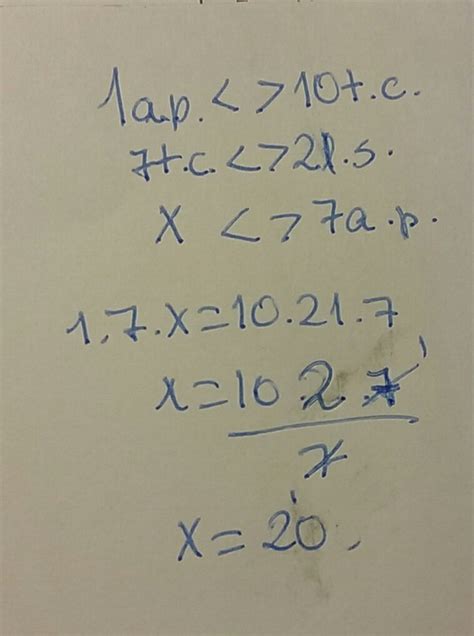 1a.p. < > 10t.c.
7t.c. <> 2l.s.
x <> 7a.p.
1.7.x=10.21.7
x=10.2.7
7
x = 20.